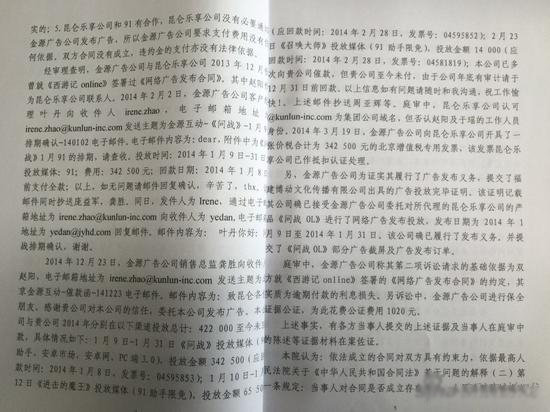 实的；5.昆仑乐享公司和 91 有合作，昆仑乐享公司没有必要通
金源广告公司发布广告。所以金源广告公司要求支付费用没有
何依据。双方合同没有成立，违约金的支付亦没有法律依据。
经审理查明，金源广告公司与昆仑乐享公司 2013 年 12 月
曾就《西游记 online》签署过《网络广告发布合同》，其中赵阳
为昆仑乐享公司联系人。2014 年 2 月 2 日，金源广告公司客户
理叶丹向收件人 irene.zhao，电子邮箱地址为
irene.zhao@kunlun-inc.com 发送主题为金源互动-《问战》-1 月
排期确认-140102 电子邮件。电子邮件内容为：dear，附件中为《
战》1 月 91 的排期，请查收。投放时间：2014 年 1 月 9 日-31 日
投放媒体：91；费用：342 500 元；回款日期：2014 年 1 月 8
前支付全款；以上，如无问题请邮件回复确认，辛苦了，thx。
邮件同时抄送座富军、龚胜。同日，发件人为 Irene，通过电子
箱地址为 irene.zhao@kunlun-inc.com 向收件人为 yedan，电子邮
地址为 yedan@jyhd.com 回复邮件。邮件内容为： 叶丹你好：问
战排期确认，谢谢。
2014 年 12 月 23 日，金源广告公司销售总监龚胜向收件人
赵阳，电子邮箱地址为 irene.zhao@kunlun-inc.com 发送主题为
京金源互动-催款函-141223 电子邮件。邮件内容为：致昆仑各位
朋友，感谢贵公司对本公司的信任，委托本公司发布广告。本公
司与贵公司 2014 年分别在以下渠道投放总计：422 000 至今未回
款，具体情况如下：1 月 9 日-1 月 31 日《问战》投放媒体（91
助手、安卓市场、安卓网、PC 端 3.0），投放金额 342 500（应回
款时间：2014 年 1 月 8 日，发票号：04595853）；1 月 10 日-1 月
12 日《进击的魔王》投放媒体（91 助手限免），投放金额 65 500
（应回款时间：2014 年 2 月 28 日，发票号：04595852）；2 月
日《召唤大师》投放媒体（91 助手限免），投放金额 14 000（应
回款时间：2014 年 2 月 28 日，发票号：04581819）；本公司已多
次向贵公司催款，但贵公司至今未付，由于公司年底有审计请于
12 月 31 日前回款。以上信息如有问题请随时和我沟通，祝工作愉
快！。上述邮件抄送周至辉等。庭审中，昆仑乐享公司认可
@kunlun-inc.com 为集团公司域名，但否认赵阳及于瑶的工作人员
身份。2014 年 3 月 19 日，金源广告公司向昆仑乐享公司开具了一
张价税合计为 342 500 元的北京增值税专用发票，该发票昆仑乐
享公司已作抵扣认证处理。
另，金源广告公司为证实其履行了广告发布义务，提交了福
建博动文化传播有限公司出具的广告投放完毕证明。该证明记载
其公司确已接受金源广告公司委托对所代理的昆仑公司的产
品《问战 OL》进行了网络广告发布投放，发布日期为 2014 年 1
月 9 日至 2014 年 1 月 31 日。该公司确已履行了发布义务。并提
交了《问战 OL》部分广告截屏及广告发布订单。
庭审中，金源广告公司称其第二项诉讼请求的基础依据为双
方就《西游记 online》签署的《网络广告发布合同》的约定，其
实质为逾期付款的利息损失。另诉讼中，金源广告公司进行保全
证据公证，为此花费公证费用 1020 元。
上述事实，有各方当事人提交的上述证据及当事人在庭审中
的陈述等证据材料在案佐证。
本院认为：依法成立的合同对双方具有约束力，依据最高人
民法院关于《中华人民共和国合同法》若干问题的解释（二）第
一条规定：当事人对合同是否成立存
5